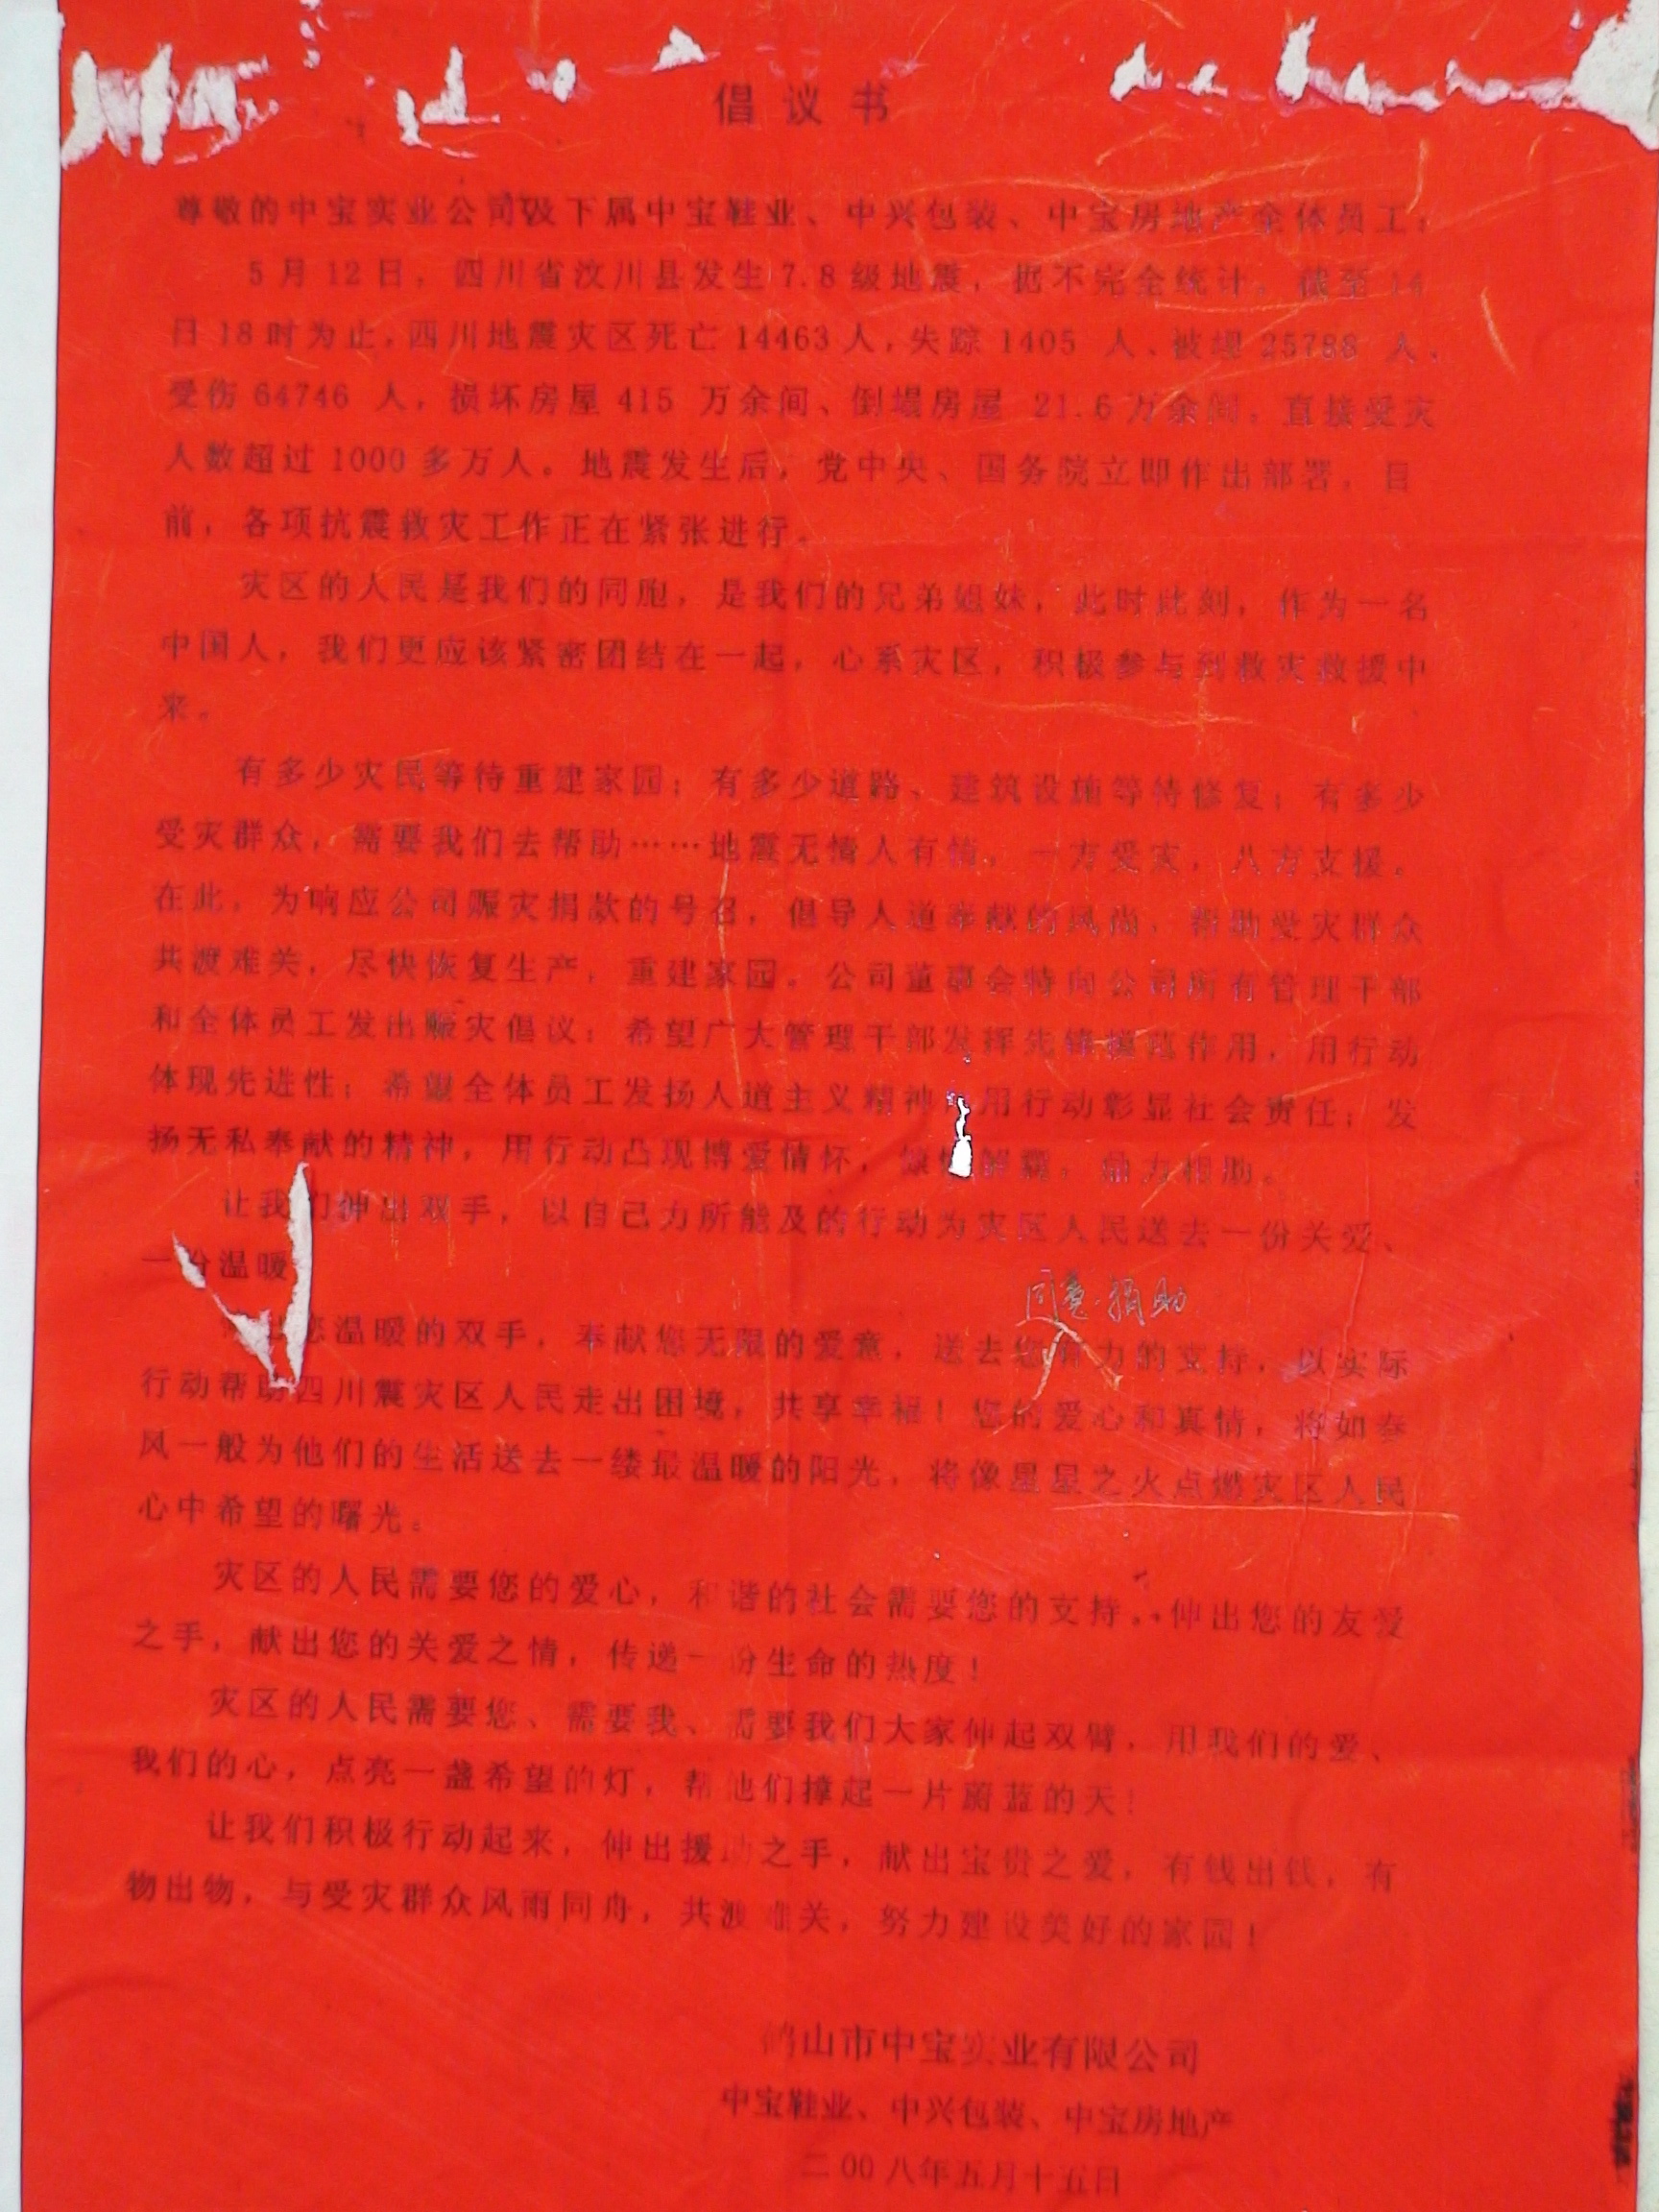 倡议书
尊敬的中宝实业公司及下属中宝鞋业、中兴包装、中宝房地产全体员工：
5月12日，四川省汶川县发生7.8级地震，据不完全统计，截至14
日18时为止，四川地震灾区死亡14463人，失踪1405 人、被埋25788 人、
受伤64746 人，损坏房屋415 万余间、倒塌房屋 21.6万余间，直接受灾
人数超过1000多万人。地震发生后，党中央、国务院立即作出部署。目
前，各项抗震救灾工作正在紧张进行。
灾区的人民是我们的同胞，是我们的兄弟姐妹，此时此刻，作为一名
中国人，我们更应该紧密团结在一起，心系灾区，积极参与到救灾救援中
来。
有多少灾民等待重建家园；有多少道路、建筑设施等待修复；有多少
受灾群众，需要我们去帮助……地震无情人有情，一方受灾，八方支援。
在此，为响应公司赈灾捐款的号召，倡导人道奉献的风尚，帮助受灾群众
共渡难关，尽快恢复生产，重建家园。公司董事会特向公司所有管理干部
和全体员工发出赈灾倡议：希望广大管理干部发挥先锋模范作用，用行动
体现先进性；希望全体员工发扬人道主义精神 用行动彰显社会责任；发
扬无私奉献的精神，用行动凸现博爱情怀，慷慨解囊，鼎力相助。
让我们伸出双手，以自己力所能及的行动为灾区人民送去一份关爱、
一份温暖
同意·捐助
您温暖的双手，奉献您无限的爱意，送去您 力的支持，以实际
行动帮助四川震灾区人民走出困境，共享幸福！您的爱心和真情，将如春
风一般为他们的生活送去一缕最温暖的阳光，将像星星之火点燃灾区人民
心中希望的曙光。
灾区的人民需要您的爱心，和谐的社会需要您的支持。伸出您的友爱
之手，献出您的关爱之情，传递一份生命的热度！
灾区的人民需要您、需要我、需要我们大家伸起双臂，用我们的爱、
我们的心，点亮一盏希望的灯，帮他们撑起一片蔚蓝的天！
让我们积极行动起来，伸出援助之手，献出宝贵之爱，有钱出钱，有
物出物，与受灾群众风雨同舟，共渡难关，努力建设美好的家园！
鹤山市中宝实业有限公司
中宝鞋业、中兴包装、中宝房地产
二00八年五月十五日